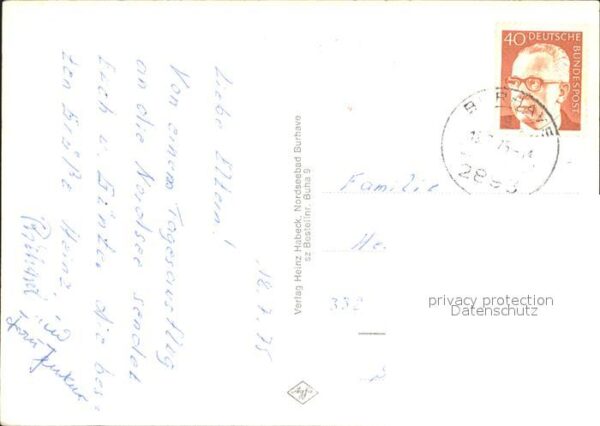 18.7.75
Liebe Eltern!
Von einem Tagesausflug
an die Nordsee sendet
Euch u. Günter die bes-
ten Grüße Heinz, 
Verlag Heinz Habeck, Nordseebad Burhave
sz Bestellnr. Buha 9
40 DEUTSCHE
BUNDESPOST
2853
Familie
332
privacy protection
Datenschutz